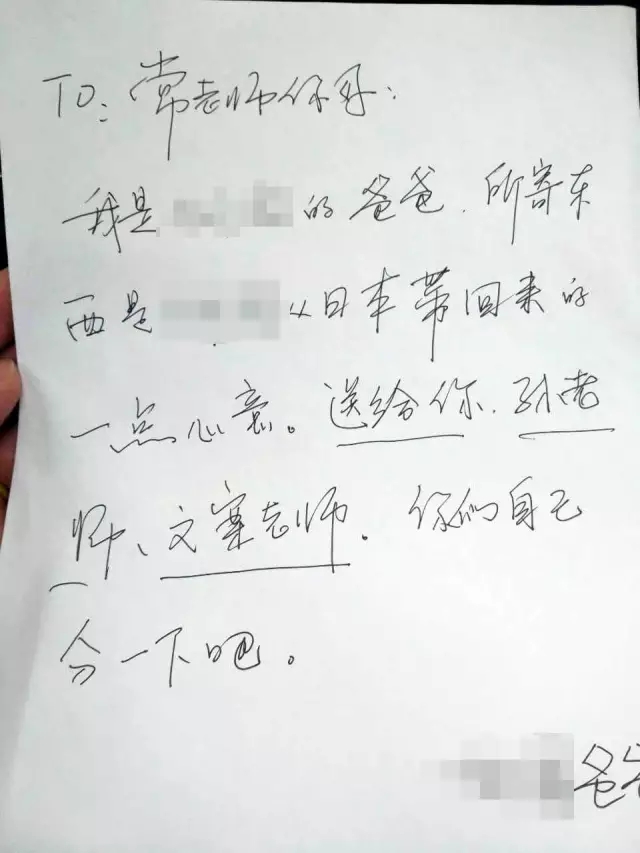 TO: 常老师你好:
我是的爸爸.所寄东
西是从日本带回来的
一点心意。送给你、孙老
师、文案老师。你们自己
分一下吧。
爸爸